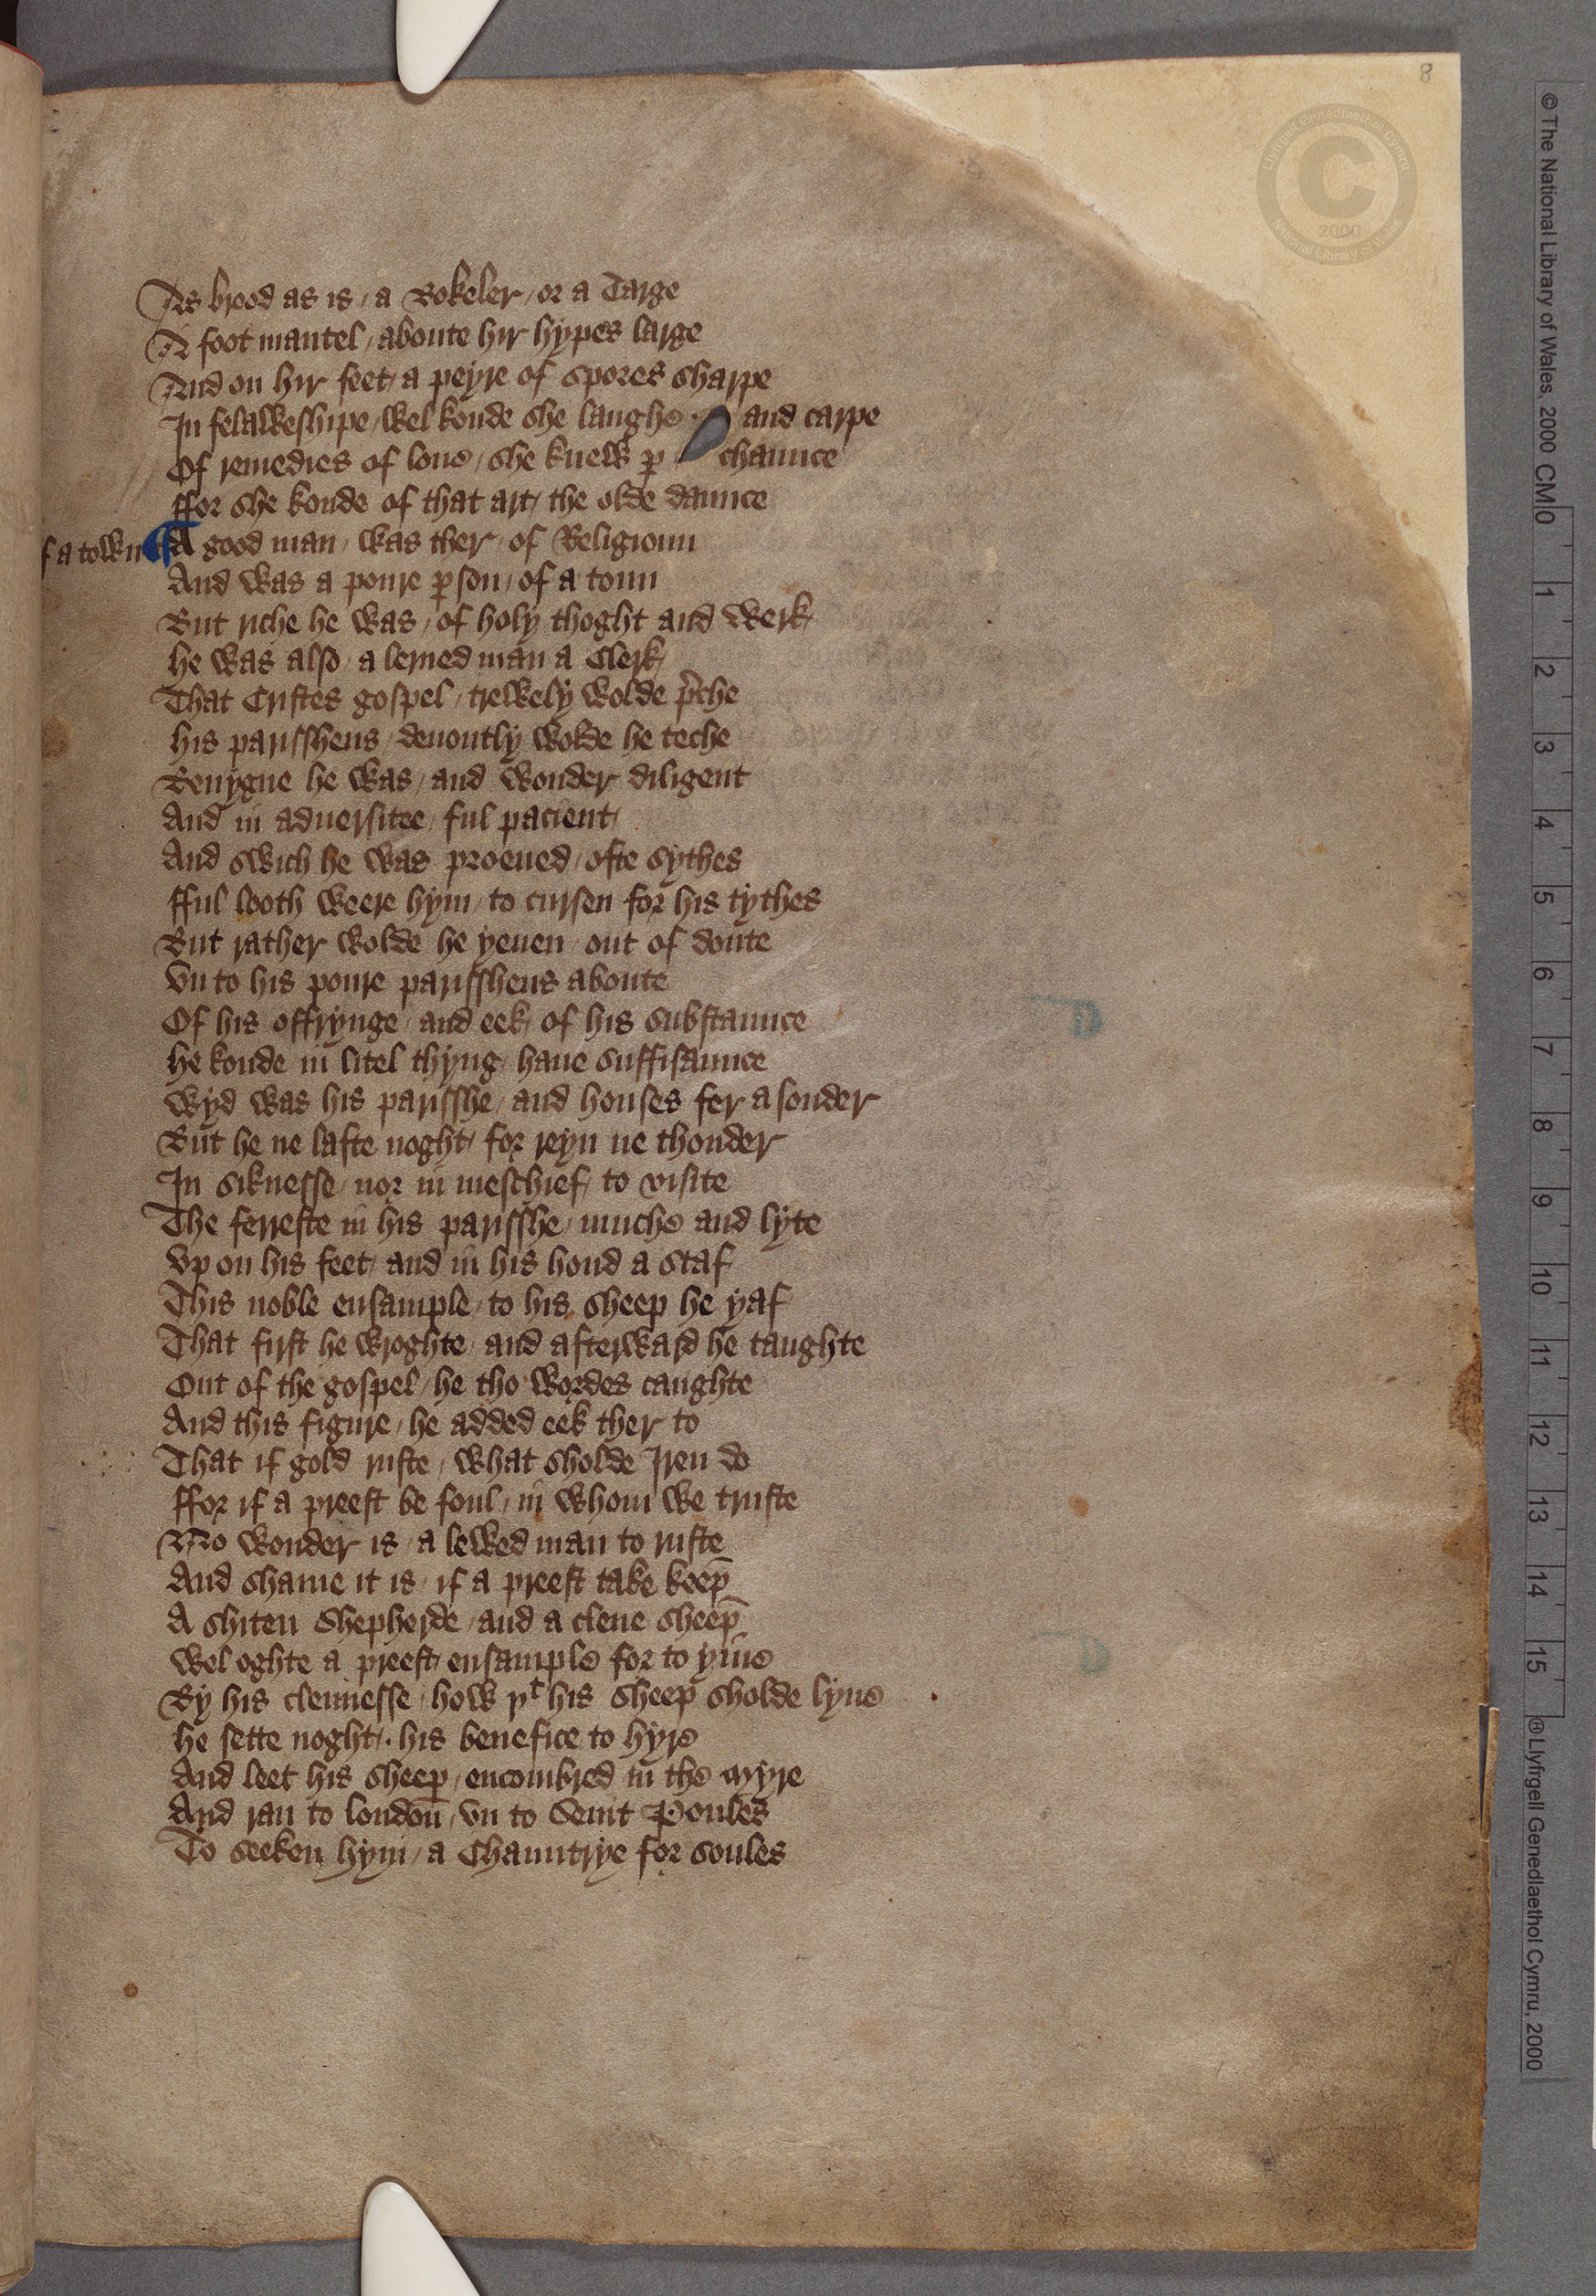 8
As brood as is / a Bokeler / or a Targe
A foot mantel / aboute hir hypes large
And on hir feet / a peyre of spores sharpe
In felaweshipe / wel koude she laughe and carpe
Of remedies of loue / she knew p chaunce
ffor she koude of that art / the olde daunce
f a town
¶ A good man / was ther / of Religioun
And was a poure pson / of a toun
But riche he was / of holy thoght and werk
he was also / a lerned man a Clerk
That Cristes gospel / trewely wolde p̃che
his parisshens / deuoutly wolde he teche
Benygne he was / and wonder diligent
And in aduersitee / ful pacient
And swich he was proeued / ofte sythes
fful looth weere hym / to cursen for his tythes
But rather wolde he yeuen / out of doute
Vn to his poure parisshens aboute
Of his offrynge / and eek / of his substaunce
he koude in litel thyng / haue suffisaunce
Wyd was his parisshe / and houses fer asonder
But he ne lafte noght / for reyn ne thonder
In siknesse / nor in meschief / to visite
The ferreste in his parisshe / muche and lyte
Vp on his feet / and in his hond a staf
This noble ensample / to his sheep he yaf
That first he wroghte / and afterward he taughte
Out of the gospel / he tho wordes caughte
And this figure / he added eek ther to
That if gold ruste / what sholde Iren do
ffor if a preest be foul / in whom we truste
No wonder is / a lewed man to ruste
And shame it is / if a preest take keep̄
A shiten Shepherde / and a clene sheep̄
Wel oghte a preest / ensample for to yiue
By his clennesse / how yͭ his sheep sholde lyue
he sette noght / . his benefice to hyre
And leet his sheep / encombred in the myre
And ran to londoū / vn to Seint Poules
To seeken hym / a Chauntrye for soules
© The National Library of Wales, 2000 CM 0 1 2 3 4 5 6 7 8 9 10 11 12 13 14 15 ® Llyfrgell Genedlaethol Cymru, 2000
Llyfrgell Genedlaethol Cymru
C
2000
National Library of Wales